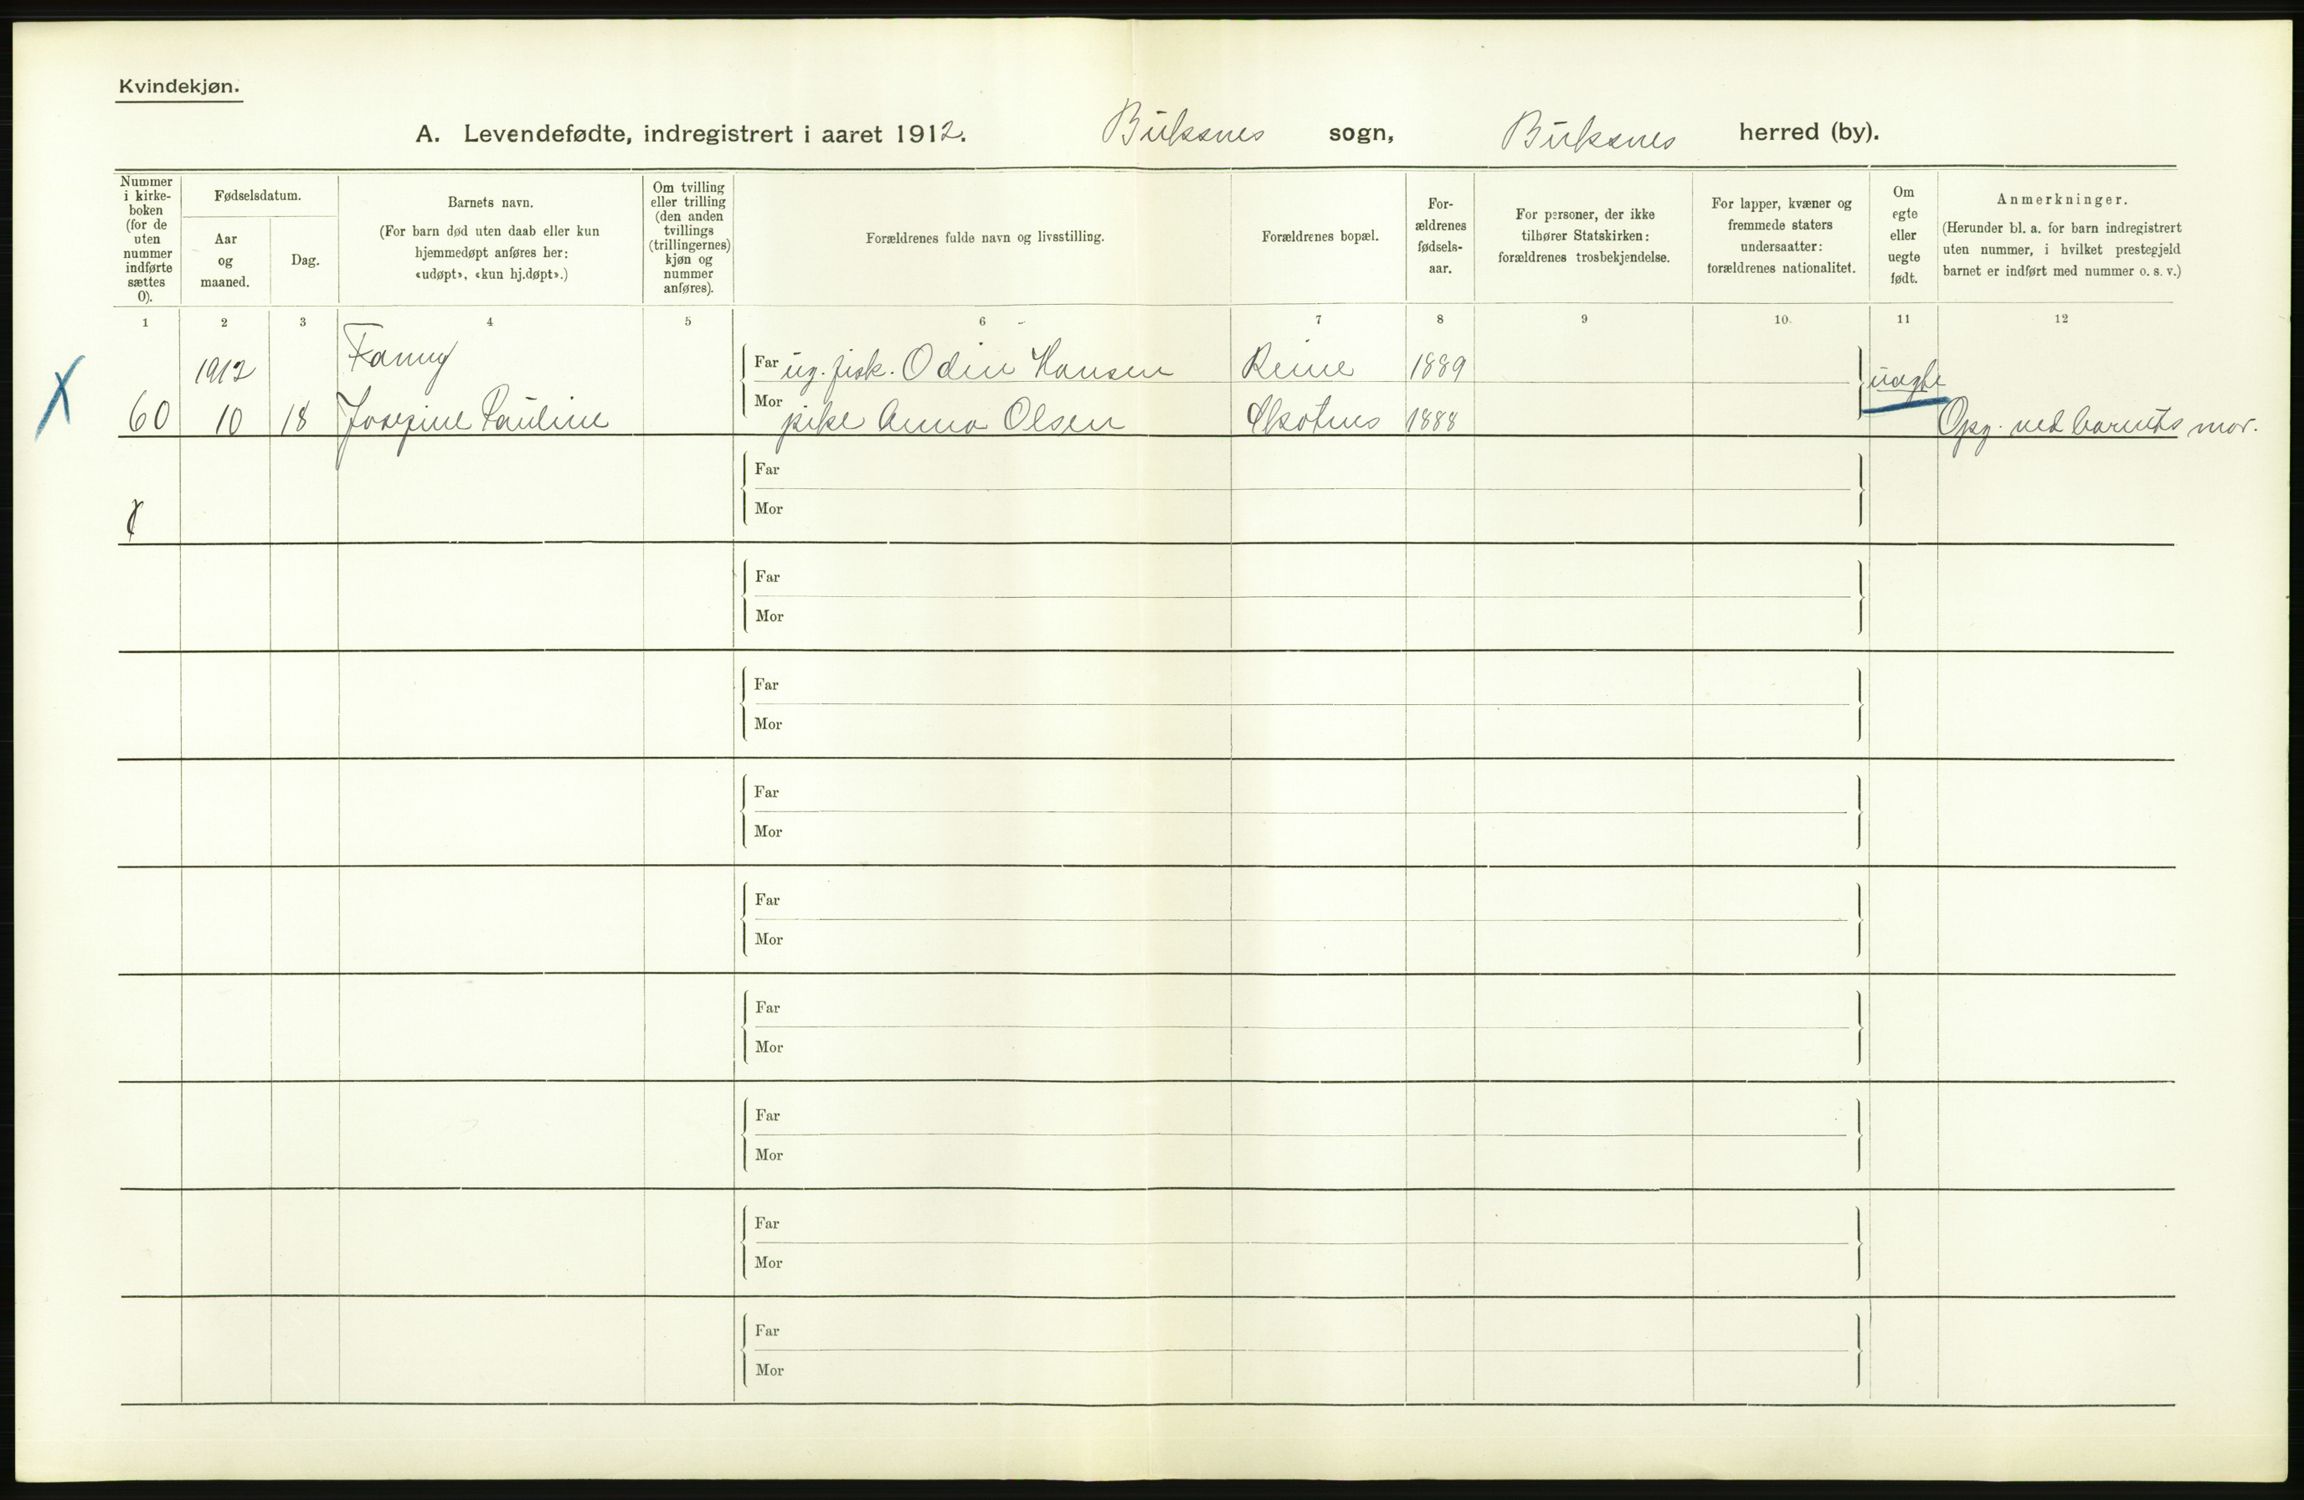 Kvindekjøn.
A. Levendefødte, indregistrert i aaret 1912. Buksnes sogn, Buksnes herred (by).
Nummer i kirke-boken (for de uten nummer indførte sættes 0).
Fødselsdatum.
Aar og maaned.
Dag.
Barnets navn.
(For barn død uten daab eller kun hjemmedøpt anføres her: «udøpt», «kun hj.døpt».)
Om tvilling eller trilling (den anden tvillings (trillingernes) kjøn og nummer anføres).
Forældrenes fulde navn og livsstilling.
Forældrenes bopæl.
For-ældrenes fødsels-aar.
For personer, der ikke tilhører Statskirken: forældrenes trosbekjendelse.
For lapper, kvæner og fremmede staters undersaatter: forældrenes nationalitet.
Om egte eller uegte født.
Anmerkninger.
(Herunder bl. a. for barn indregistrert uten nummer, i hvilket prestegjeld barnet er indført med nummer o. s. v.)
1 2 3 4 5 6 7 8 9 10. 11 12
1912 Fanny Far ug. fisk. Odin Hansen Reine 1889 uægte
60 10 18 Josefine Pauline Mor pike Anna Olsen 1888 Opg. ved barnets mor.
Far
Mor
Far
Mor
Far
Mor
Far
Mor
Far
Mor
Far
Mor
Far
Mor
Far
Mor
Far
Mor